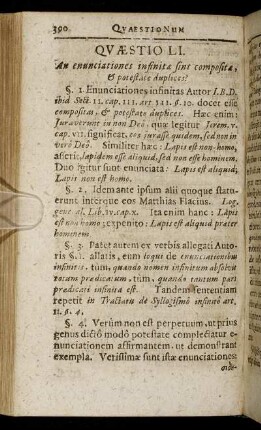 390 QVAESTIONUM
QVÆSTIO LI.
An enunciationes infinitæ sint compositæ,
& potestate duplices?
§. 1. Enunciationes infinitas Autor I. B. D.
ibid Sect. II. cap. III. art. 321. §. 10. docet esse
compositas, & potestate duplices. Hæc enim:
Juraverunt in non Deo, quæ legitur Jerem. v.
cap. VII. significat, eos jurasse quidem, sed non in
vero Deo. Similiter hæc: Lapis est non-homo,
asserit, lapidem esse aliquid, sed non esse hominem.
Duo igitur sunt enunciata: Lapis est aliquid,
Lapis non est homo.
§. 2. Idem ante ipsum alii quoque statu-
erunt interque eos Matthias Flacius. Log.
Lib. IV. cap. X. Ita enim hanc: Lapis
est non homo; exponito: Lapis est aliquid præter
hominem.
§. 3. Patet autem ex verbis allegati Auto-
ris §. 1. allatis, eum loqui de enunciationibus
infinitis, tum, quando nomen infinitum absolvit
totum prædicatum, tum, quando tantum pars
prædicati infinita est. Tandem sententiam
repetit in Tractatu de Syllogismo infinito art.
II. §. 4.
§. 4. Verùm non est perpetuum, ut prius
genus dicto modo potestate complectatur e-
nunciationem affirmantem, ut demonstrant
exempla. Verissimæ sunt istæ enunciationes: